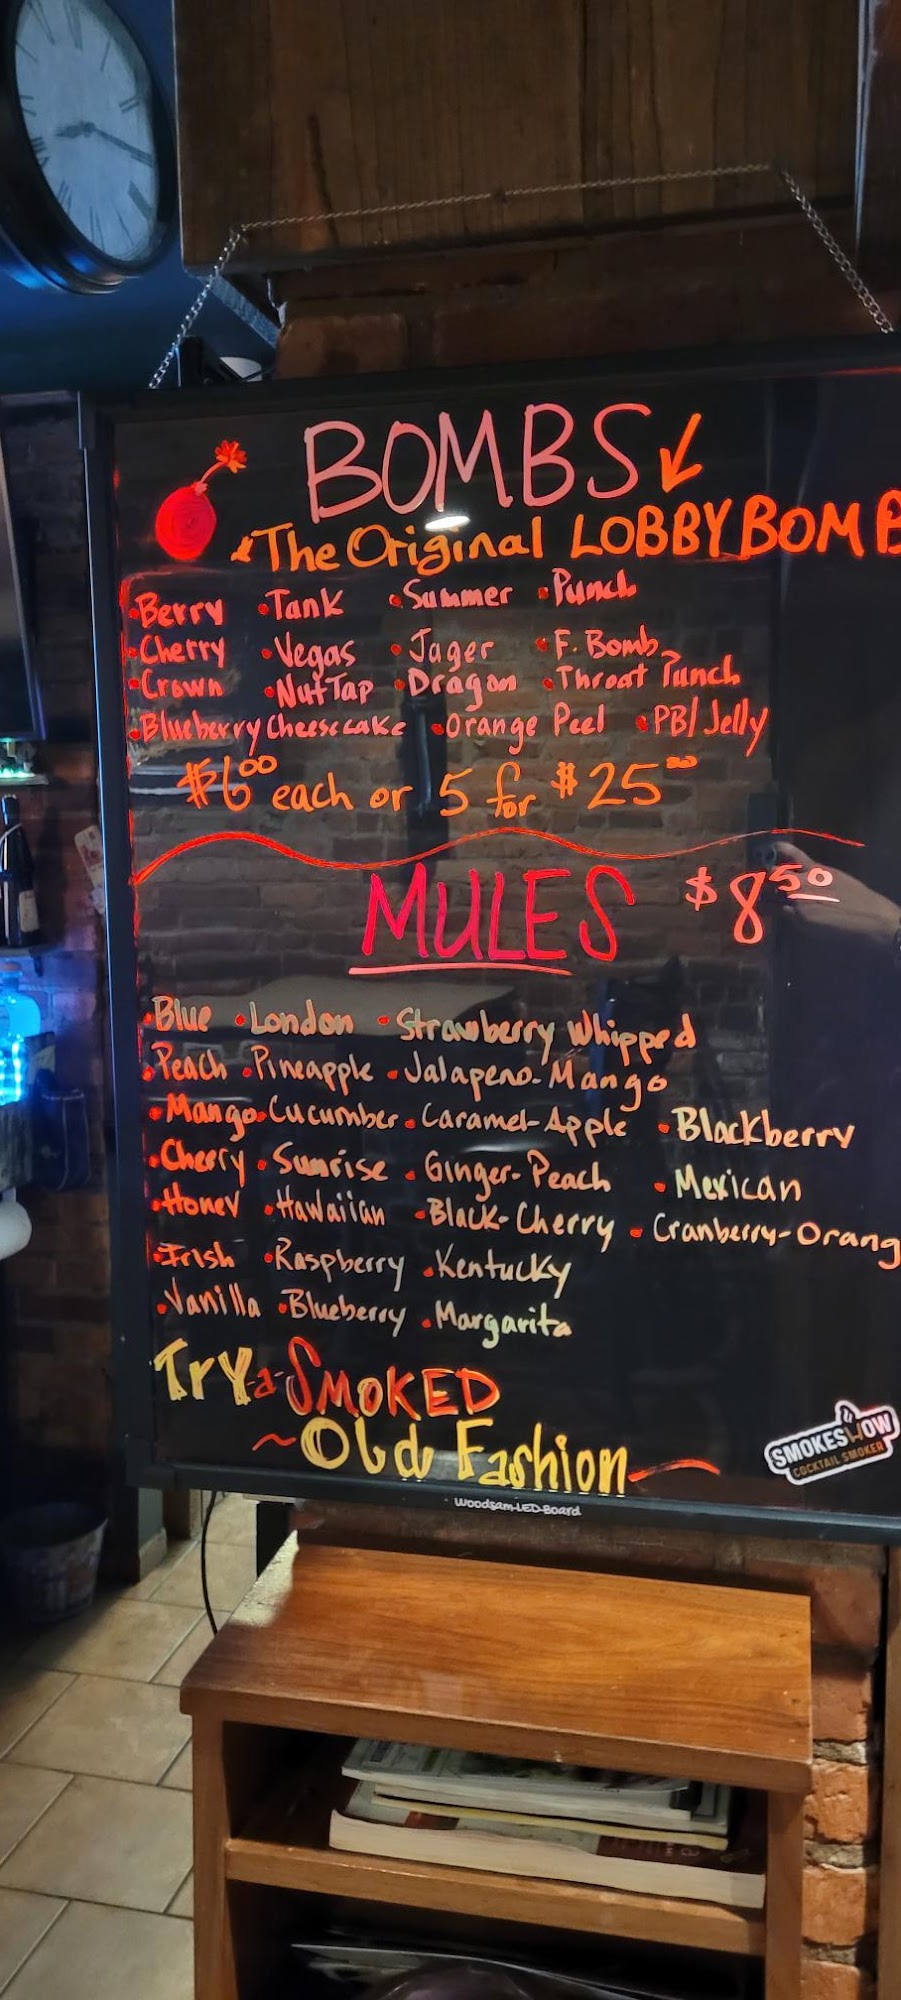 BOMBS
The Original LOBBYBOMB
Berry Tank Summer Punch
Cherry Vegas Jager F. Bomb
Crown NutTap Dragon Throat Punch
Blueberry Cheesecake Orange Peel PB/Jelly
$6.00 each or 5 for $25.00
MULES $8.50
Blue London Strawberry Whipped
Peach Pineapple Jalapeno-Mango
Mango Cucumber Caramel-Apple Blackberry
Cherry Sunrise Ginger-Peach Mexican
Honey Hawaiian Black-Cherry Cranberry-Orang
Irish Raspberry Kentucky
Vanilla Blueberry Margarita
Try-a-SMOKED
~Old Fashion
SMOKESHOW
COCKTAIL SMOKER
Woodsam-LED-Board